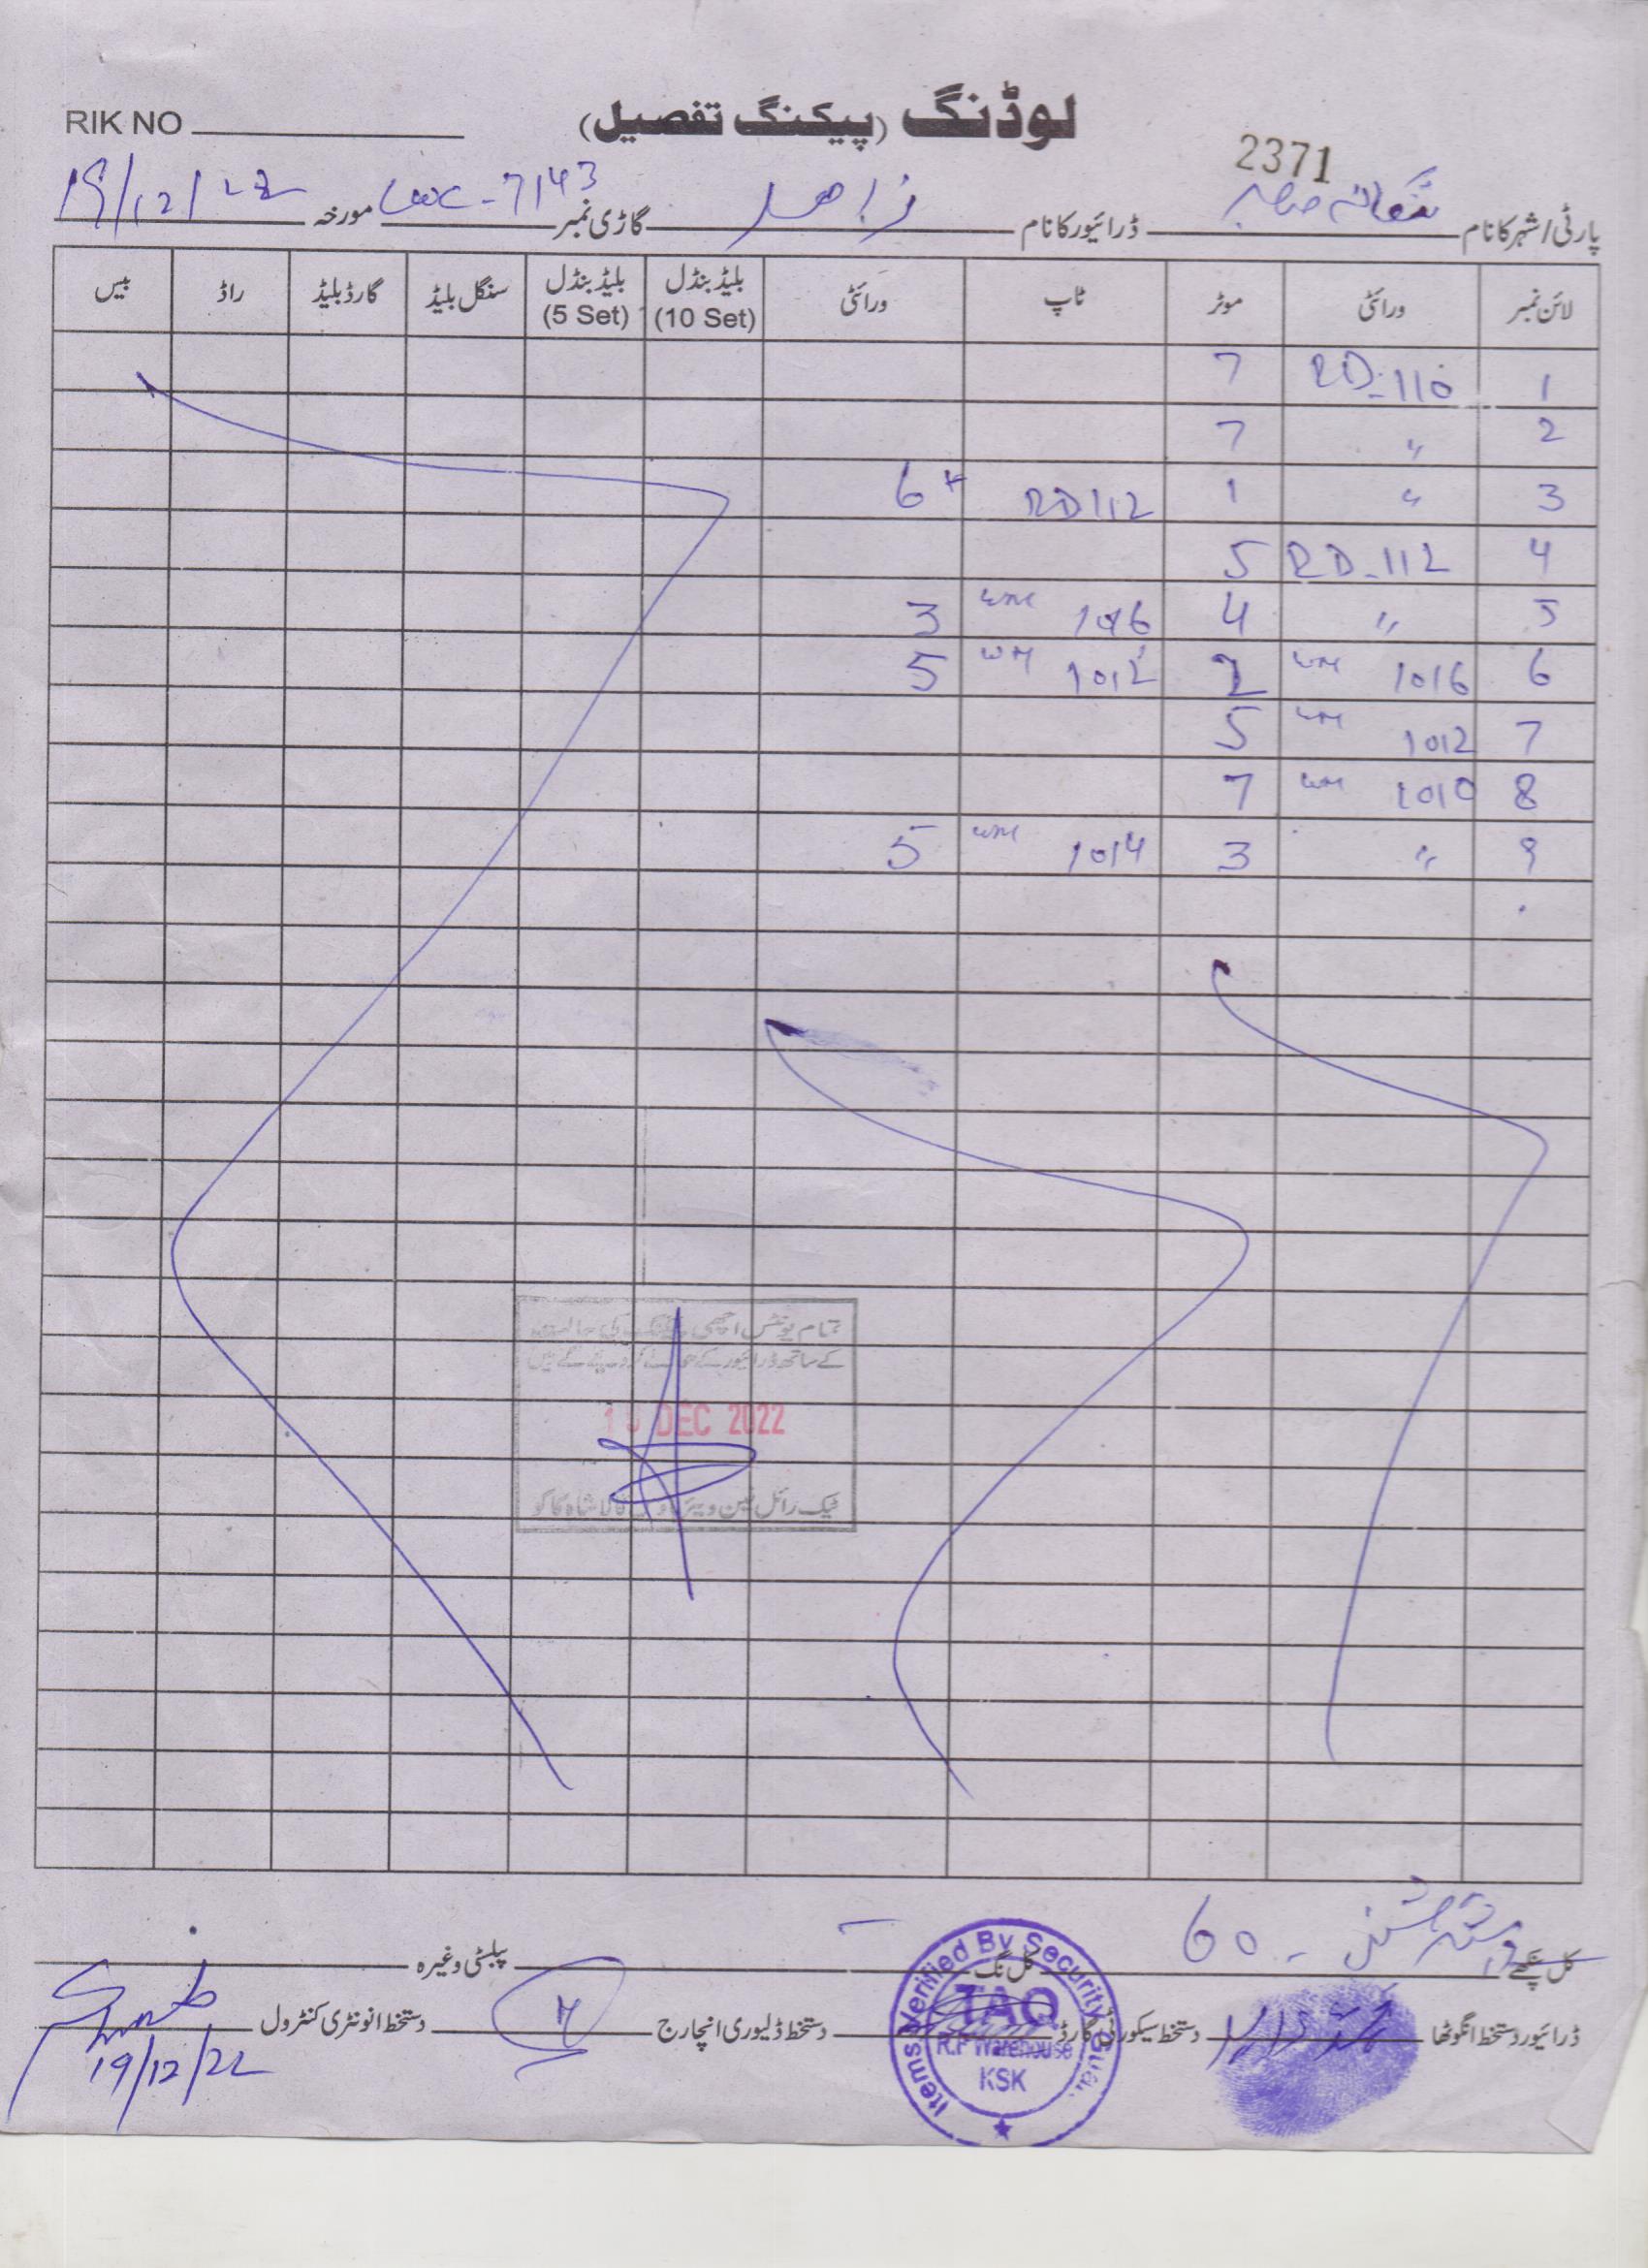 RIK NO
لوڈنگ (پیکنگ تفصیل)
2371
پارٹی/شہر کا نام ننکانہ صاحب ڈرائیور کا نام زاہد گاڑی نمبر 7143 مورخہ 19/12/22
لائن نمبر ورائٹی موٹر ٹاپ ورائٹی بلیڈ بنڈل (10 Set) بلیڈ بنڈل (5 Set) سنگل بلیڈ گارڈ بلیڈ راڈ بیس
1 RD-110 7
2 〃 7
3 〃 1 RD112 6*
4 RD-112 5
5 〃 4 WM 1016 3
6 WM 1016 2 WM 1012 5
7 WM 1012 5
8 WM 1010 7
9 〃 3 WM 1014 5
تمام یونٹس اچھی پیکنگ کی حالت
کے ساتھ ڈرائیور کے حوالے کر دیئے گئے ہیں
DEC 2022
کالا شاہ کاکو
کل پنکھے 60 کل نگ پبلسٹی وغیرہ
ڈرائیور دستخط انگوٹھا دستخط سیکورٹی گارڈ دستخط ڈلیوری انچارج دستخط انونٹری کنٹرول
Items Verified By Security
R.F Warehouse
KSK
19/12/22